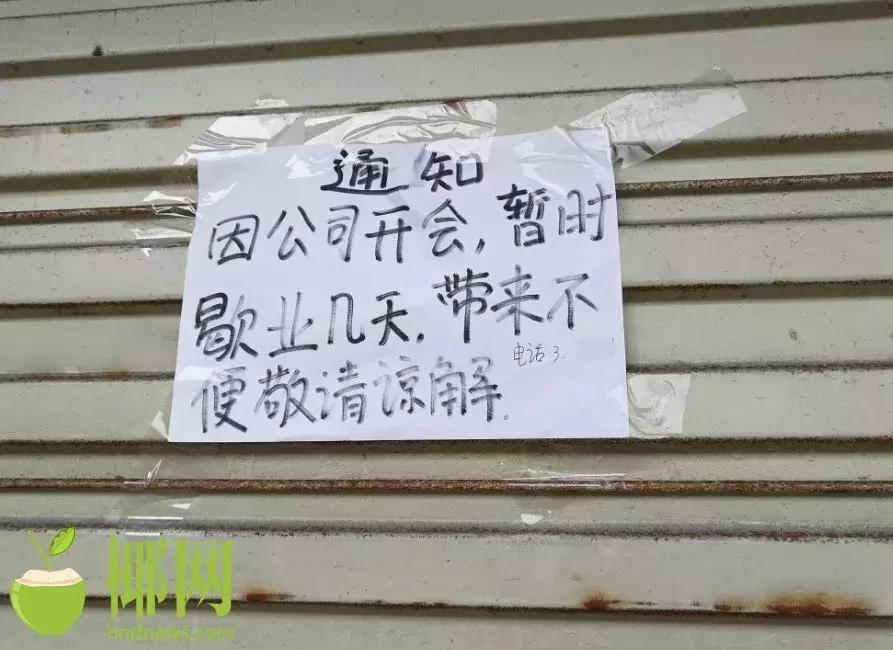 通知
因公司开会,暂时
歇业几天.带来不
电话3.
便敬请谅解。
椰网
hndnews.com